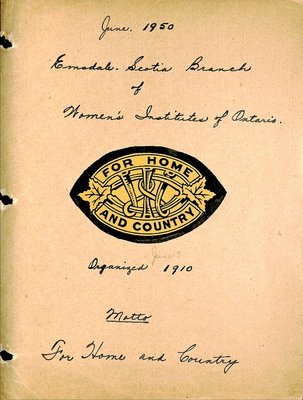 June. 1950
Emsdale-Scotia Branch
of
Women's Institutes of Ontario.
FOR HOME
WI
AND COUNTRY
June?
Organized 1910
Motto
For Home and Country